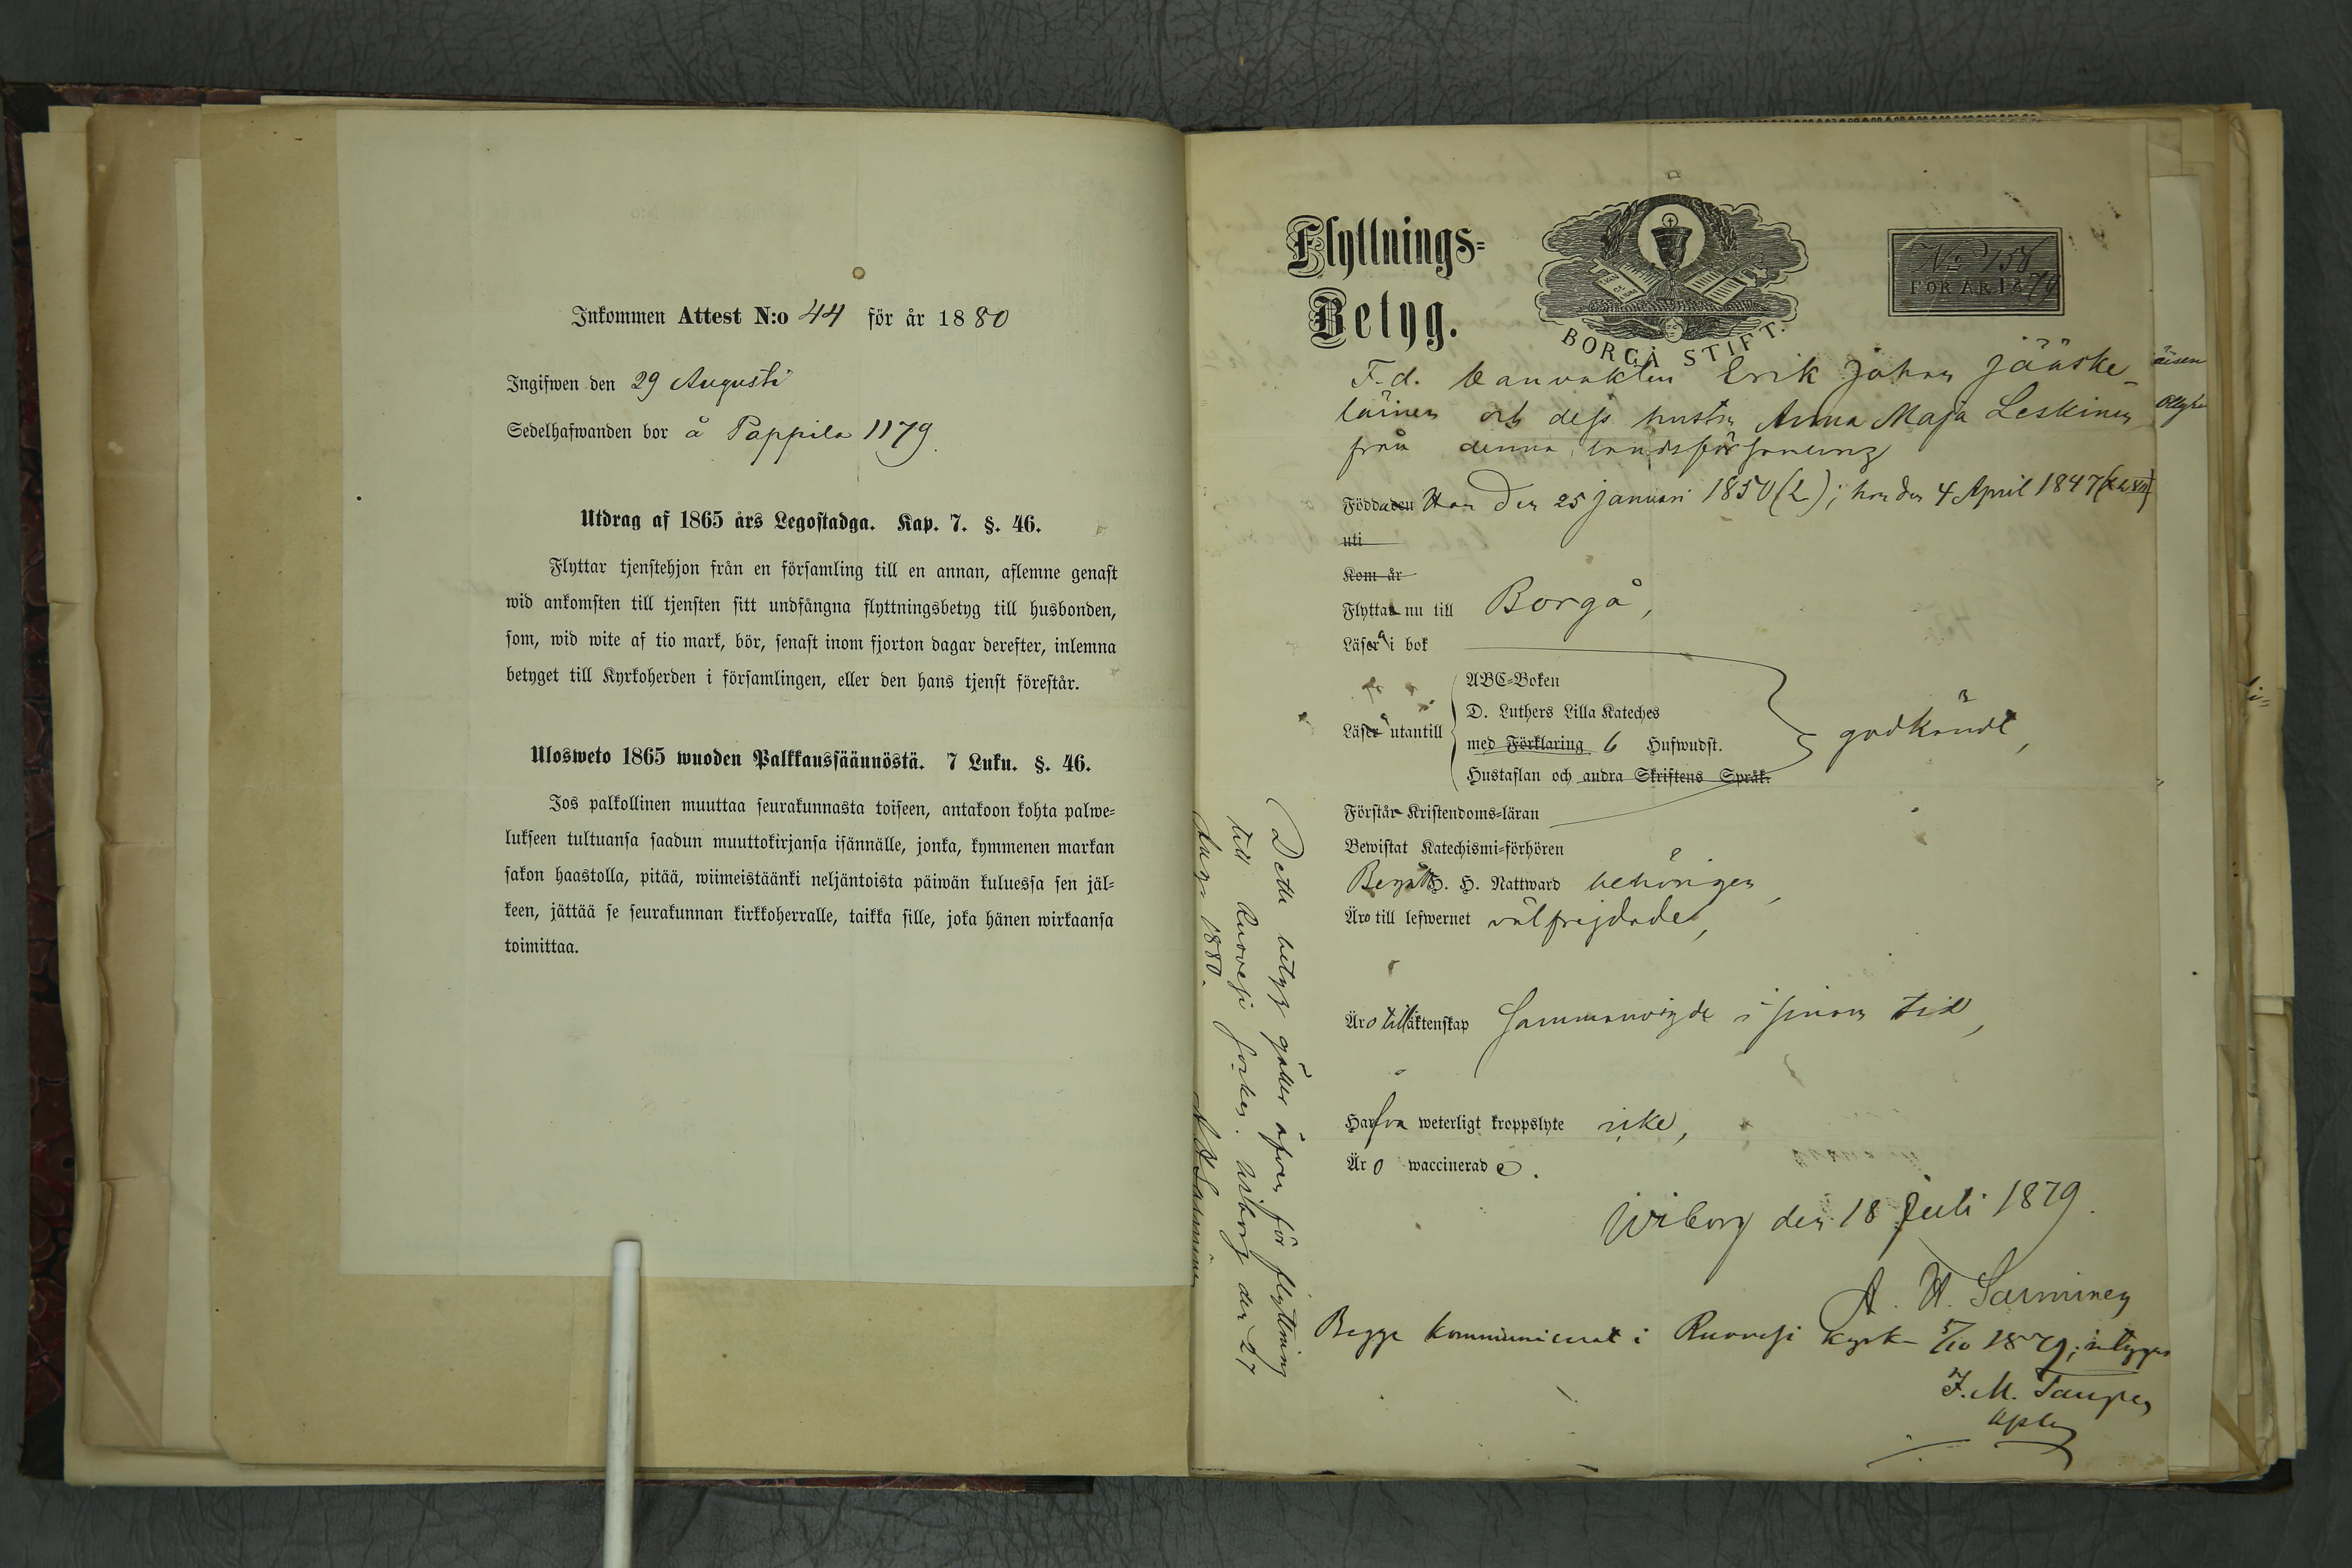 Inkommen Attest N:o 44 för år 1880
Ingifwen den 29 Augusti
Sedelhafwanden bor å Pappila 1179.
Utdrag af 1865 års Legostadga. Kap. 7. §. 46.
Flyttar tjenstehjon från en församling till en annan, aflemne genast
wid ankomsten till tjensten sitt undfångna flyttningsbetyg till husbonden,
som, wid wite af tio mark, bör, senast inom fjorton dagar derefter, inlemna
betyget till Kyrkoherden i församlingen, eller den hans tjenst förestår.
Ulosweto 1865 wuoden Palkkaussäännöstä. 7 Luku. §. 46.
Jos palkollinen muuttaa seurakunnasta toiseen, antakoon kohta palwe-
lukseen tultuansa saadun muuttokirjansa isännälle, jonka, kymmenen markan
sakon haastolla, pitää, wiimeistäänki neljäntoista päiwän kuluessa sen jäl-
keen, jättää se seurakunnan kirkkoherralle, taikka sille, joka hänen wirkaansa
toimittaa.
Flyttnings-
Betyg.
BORGÅ STIFT.
No 158
FÖR ÅR 1879
F.d. banvakten Erik Johan Jääske-
läinen och dess hustru Anna Maja Leskinen
från denna landsförsamling
Födda den Han den 25 Januari 1850 (L); hon den 4 April 1847
uti
Kom år
Flytta nu till Borgå,
Läsa i bok
Läsa utantill
ABC-Boken
D. Luthers Lilla Kateches
med Förklaring 6 Hufwudst.
Hustaflan och andra Skriftens Språk.
godkändt,
Förstår Kristendoms-läran
Bewistat Katechismi-förhören
Begått H. H. Nattward behörigen,
Äro till lefwernet välfrejdade,
Äro till äktenskap sammanvigde i sinom tid,
Hafva weterligt kroppslyte icke,
Äro waccinerade.
Wiborg den 18 Juli 1879.
A. H. Sarminen
Begge kommunicerat i Ruovesi kyrk- 5/10 1879; intygar
F. M.
Detta betyg gäller äfven för flyttning
till Ruovesi socken. Wiborg den 27
Aug. 1880. A H Sarminen